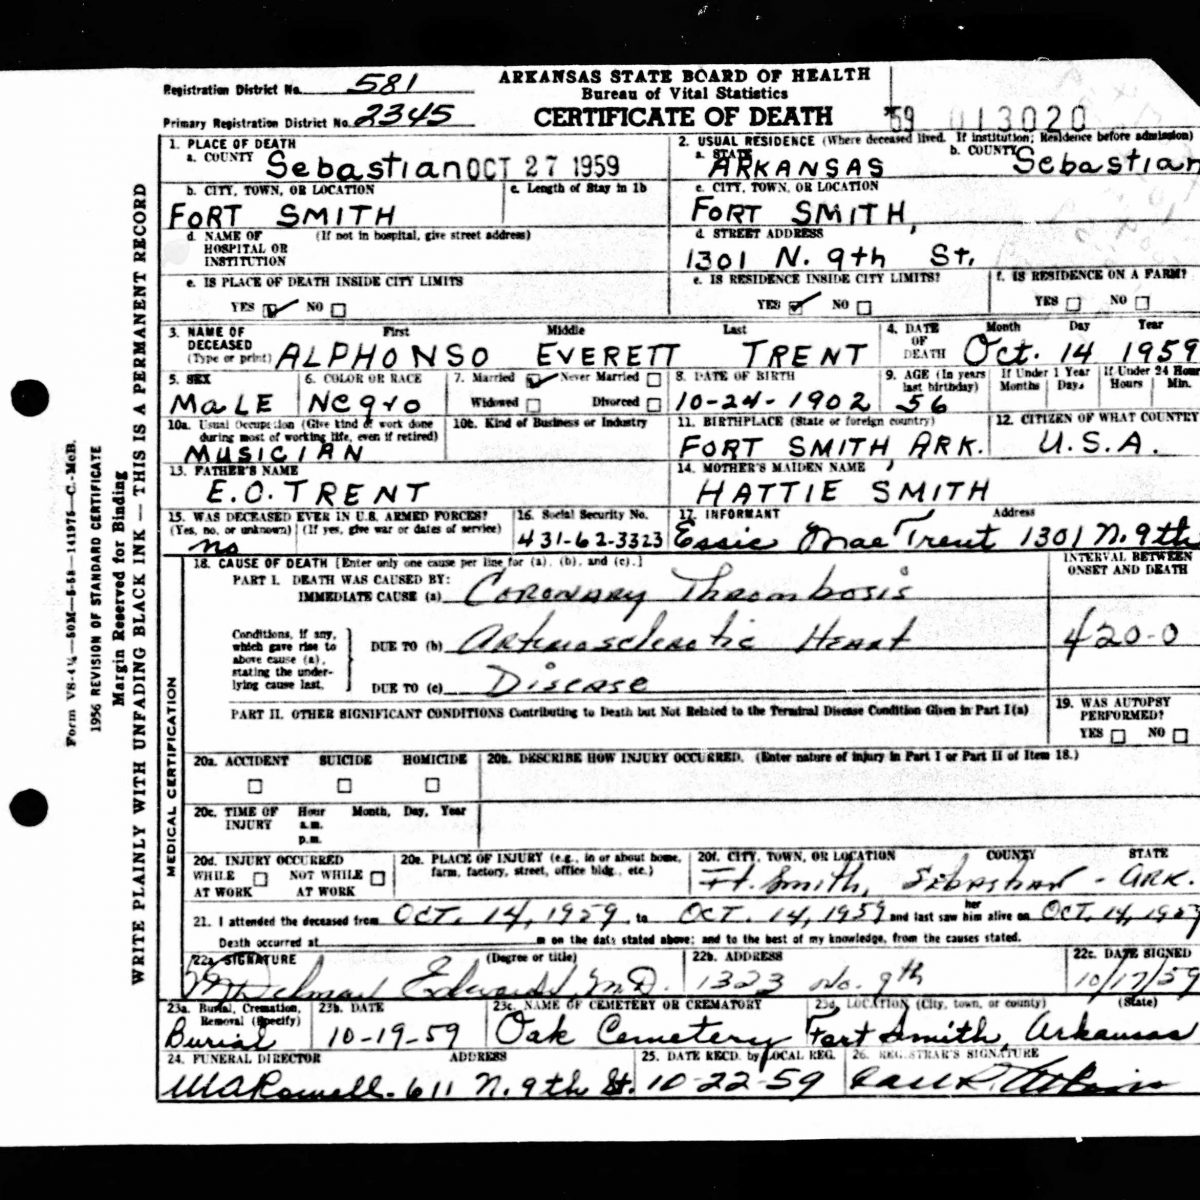 ARKANSAS STATE BOARD OF HEALTH
Bureau of Vital Statistics
CERTIFICATE OF DEATH
Registration District No. 581
Primary Registration District No. 2345
59 013020
1. PLACE OF DEATH
a. COUNTY Sebastian OCT 27 1959
2. USUAL RESIDENCE (Where deceased lived. If institution; Residence before admission)
a. STATE ARKANSAS b. COUNTY Sebastian
b. CITY, TOWN, OR LOCATION
FORT SMITH
c. Length of Stay in 1b
c. CITY, TOWN, OR LOCATION
FORT SMITH,
d. NAME OF HOSPITAL OR INSTITUTION (If not in hospital, give street address)
d. STREET ADDRESS
1301 N. 9th St.
e. IS PLACE OF DEATH INSIDE CITY LIMITS
YES NO
e. IS RESIDENCE INSIDE CITY LIMITS?
YES NO
f. IS RESIDENCE ON A FARM?
YES NO
3. NAME OF DECEASED (Type or print)
First Middle Last
ALPHONSO EVERETT TRENT
4. DATE OF DEATH Month Day Year
Oct. 14 1959
5. SEX
MaLE
6. COLOR OR RACE
Negro
7. Married Never Married
Widowed Divorced
8. DATE OF BIRTH
10-24-1902
9. AGE (In years last birthday)
56
If Under 1 Year
Months Days
If Under 24 Hour
Hours Min.
10a. Usual Occupation (Give kind of work done during most of working life, even if retired)
MUSICIAN
10b. Kind of Business or Industry
11. BIRTHPLACE (State or foreign country)
FORT SMITH, ARK.
12. CITIZEN OF WHAT COUNTRY
U.S.A.
13. FATHER'S NAME
E.O. TRENT
14. MOTHER'S MAIDEN NAME
HATTIE SMITH
15. WAS DECEASED EVER IN U.S. ARMED FORCES?
(Yes, no, or unknown) (If yes, give war or dates of service)
no
16. Social Security No.
431-62-3323
17. INFORMANT Address
Essie Mae Trent 1301 N. 9th
18. CAUSE OF DEATH [Enter only one cause per line for (a), (b), and (c).]
INTERVAL BETWEEN ONSET AND DEATH
PART I. DEATH WAS CAUSED BY:
IMMEDIATE CAUSE (a) Coronary Thrombosis
Conditions, if any, which gave rise to above cause (a), stating the underlying cause last.
DUE TO (b) Arteriosclerotic Heart
420-0
DUE TO (c) Disease
PART II. OTHER SIGNIFICANT CONDITIONS Contributing to Death but Not Related to the Terminal Disease Condition Given in Part I(a)
19. WAS AUTOPSY PERFORMED?
YES NO
20a. ACCIDENT SUICIDE HOMICIDE
20b. DESCRIBE HOW INJURY OCCURRED. (Enter nature of injury in Part I or Part II of Item 18.)
20c. TIME OF INJURY Hour a.m. p.m. Month, Day, Year
20d. INJURY OCCURRED
WHILE AT WORK NOT WHILE AT WORK
20e. PLACE OF INJURY (e.g., in or about home, farm, factory, street, office bldg., etc.)
20f. CITY, TOWN, OR LOCATION COUNTY STATE
Ft. Smith, Sebastian - ARK.
21. I attended the deceased from OCT. 14, 1959 to OCT. 14, 1959 and last saw her him alive on OCT. 14, 1959
Death occurred at m on the date stated above; and to the best of my knowledge, from the causes stated.
22a. SIGNATURE (Degree or title)
Delmar Edwards M.D.
22b. ADDRESS
1323 No. 9th
22c. DATE SIGNED
10/17/59
23a. Burial, Cremation, Removal (Specify)
Burial
23b. DATE
10-19-59
23c. NAME OF CEMETERY OR CREMATORY
Oak Cemetery
23d. LOCATION (City, town, or county) (State)
Fort Smith, Arkansas
24. FUNERAL DIRECTOR ADDRESS
Rowell - 611 N. 9th St.
25. DATE RECD. by LOCAL REG.
10-22-59
26. REGISTRAR'S SIGNATURE
Form VS-4
1956 REVISION OF STANDARD CERTIFICATE
Margin Reserved for Binding
WRITE PLAINLY WITH UNFADING BLACK INK — THIS IS A PERMANENT RECORD
MEDICAL CERTIFICATION